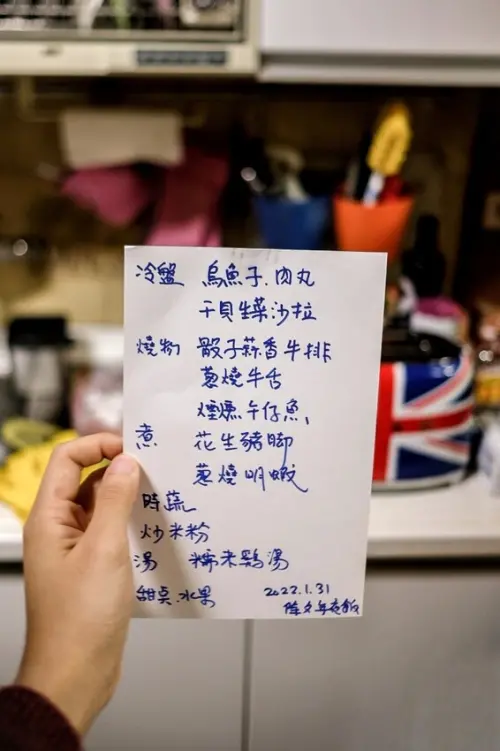 冷盤 烏魚子.肉丸
干貝生菜沙拉
燒物 骰子蒜香牛排
蔥燒牛舌
煙燻午仔魚
煮 花生豬腳
蔥燒明蝦
時蔬
炒米粉
湯 糯米鷄湯
甜桌.水果
2022.1.31
除夕年夜飯